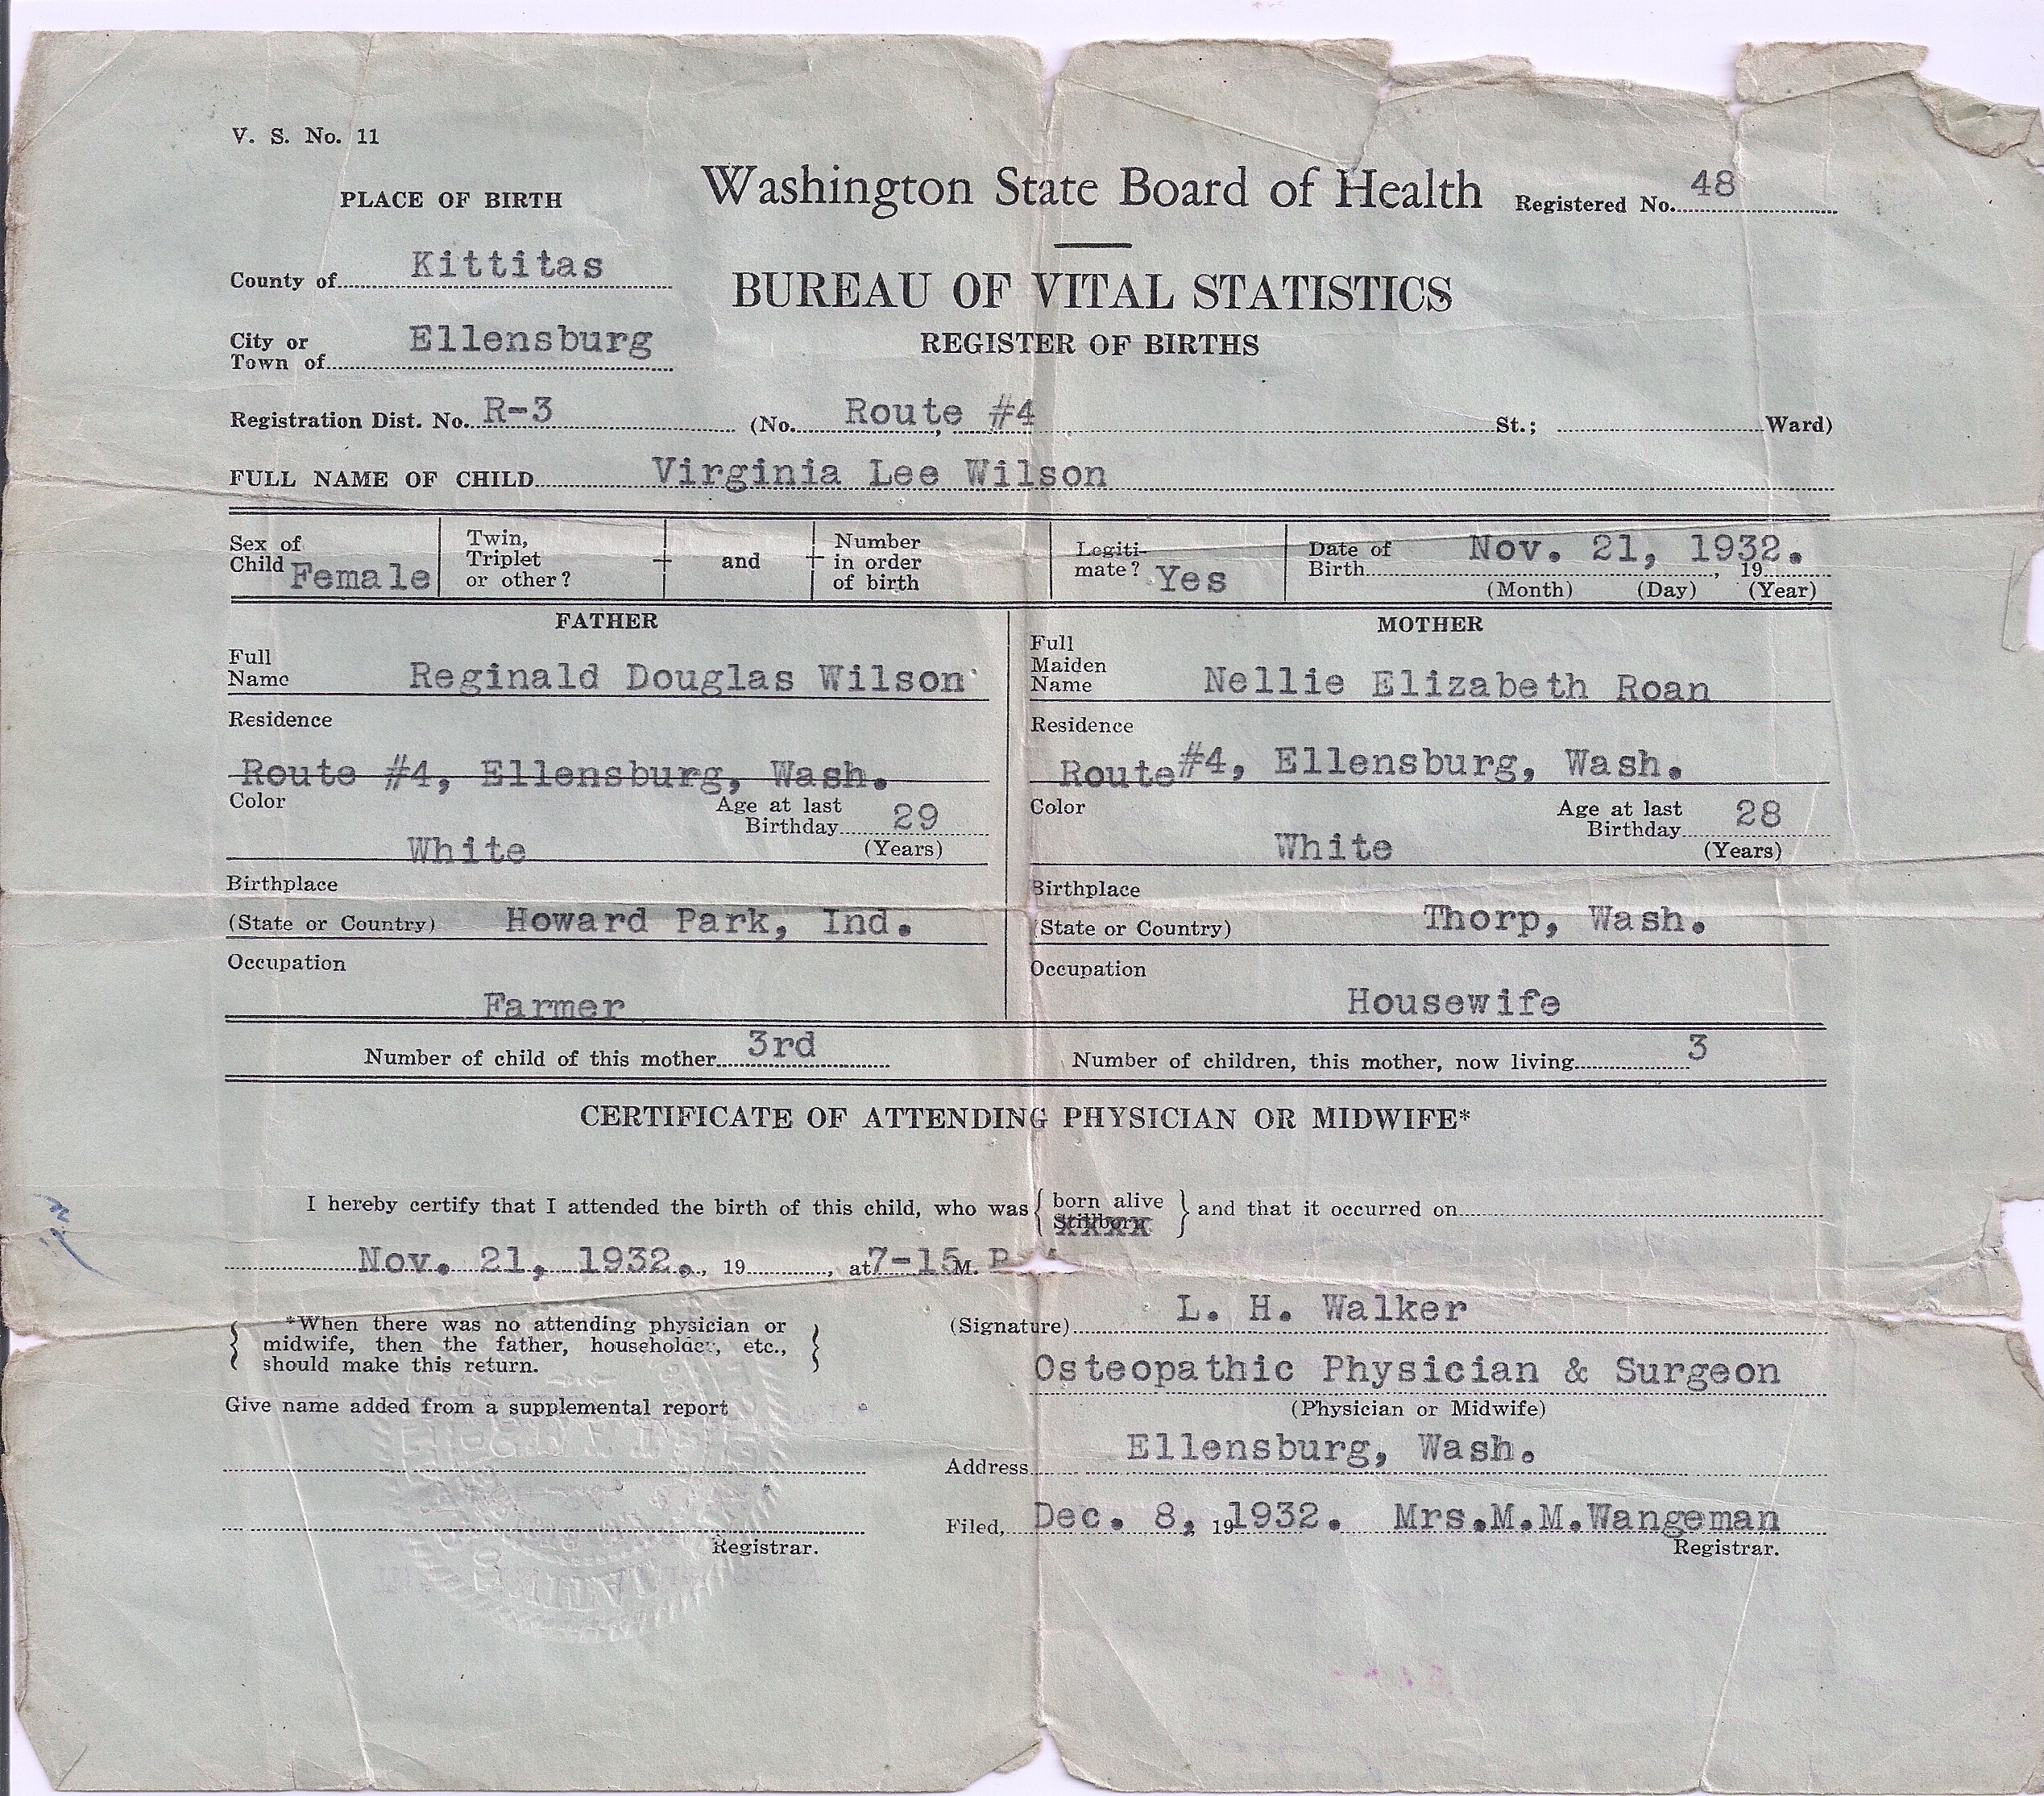 V. S. No. 11
PLACE OF BIRTH
Washington State Board of Health
Registered No. 48
County of Kittitas
BUREAU OF VITAL STATISTICS
City or Town of Ellensburg
REGISTER OF BIRTHS
Registration Dist. No. R-3 (No. Route #4 St.; Ward)
FULL NAME OF CHILD Virginia Lee Wilson
Sex of Child Female
Twin, Triplet or other?
and
Number in order of birth
Legiti-mate? Yes
Date of Birth Nov. 21, 1932. , 19
(Month) (Day) (Year)
FATHER
Full Name Reginald Douglas Wilson
Residence
Route #4, Ellensburg, Wash.
Color White
Age at last Birthday 29
(Years)
Birthplace
(State or Country) Howard Park, Ind.
Occupation
Farmer
MOTHER
Full Maiden Name Nellie Elizabeth Roan
Residence
Route #4, Ellensburg, Wash.
Color White
Age at last Birthday 28
(Years)
Birthplace
(State or Country) Thorp, Wash.
Occupation
Housewife
Number of child of this mother 3rd
Number of children, this mother, now living 3
CERTIFICATE OF ATTENDING PHYSICIAN OR MIDWIFE*
I hereby certify that I attended the birth of this child, who was { born alive Stillborn } and that it occurred on
Nov. 21, 1932. , 19 , at 7-15 M. P
*When there was no attending physician or
midwife, then the father, householder, etc.,
should make this return.
Give name added from a supplemental report
Registrar.
(Signature) L. H. Walker
Osteopathic Physician & Surgeon
(Physician or Midwife)
Address Ellensburg, Wash.
Filed, Dec. 8, 19 1932. Mrs.M.M.Wangeman
Registrar.